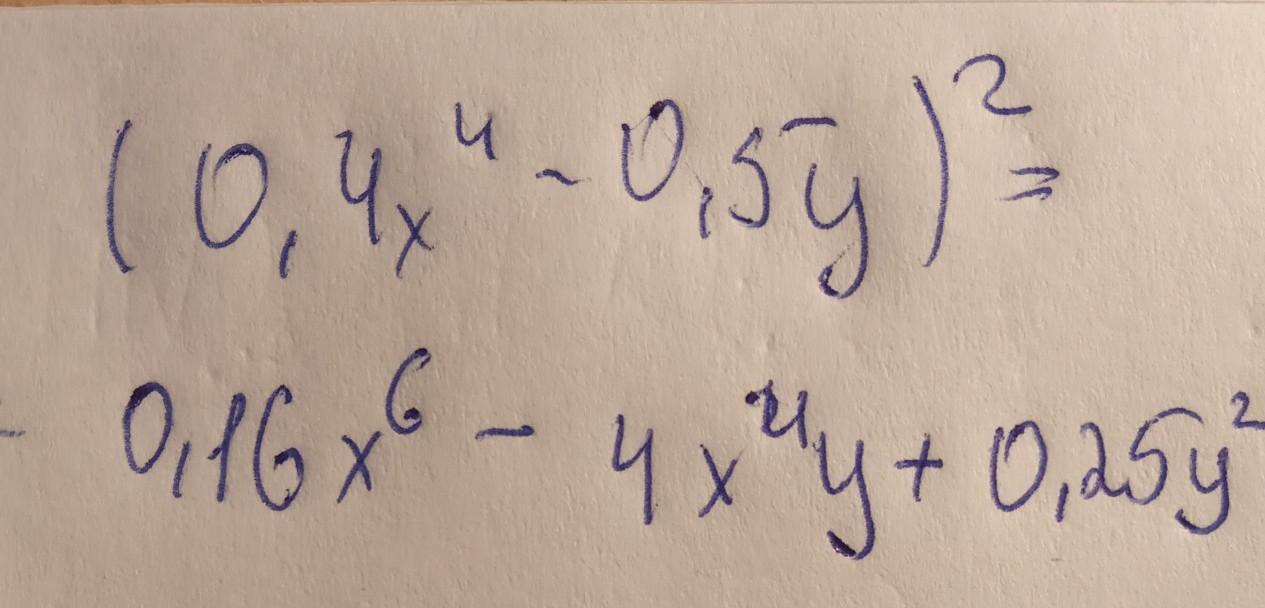 (0,4x⁴ - 0,5y)² =
- 0,16x⁶ - 4x⁴y + 0,25y²